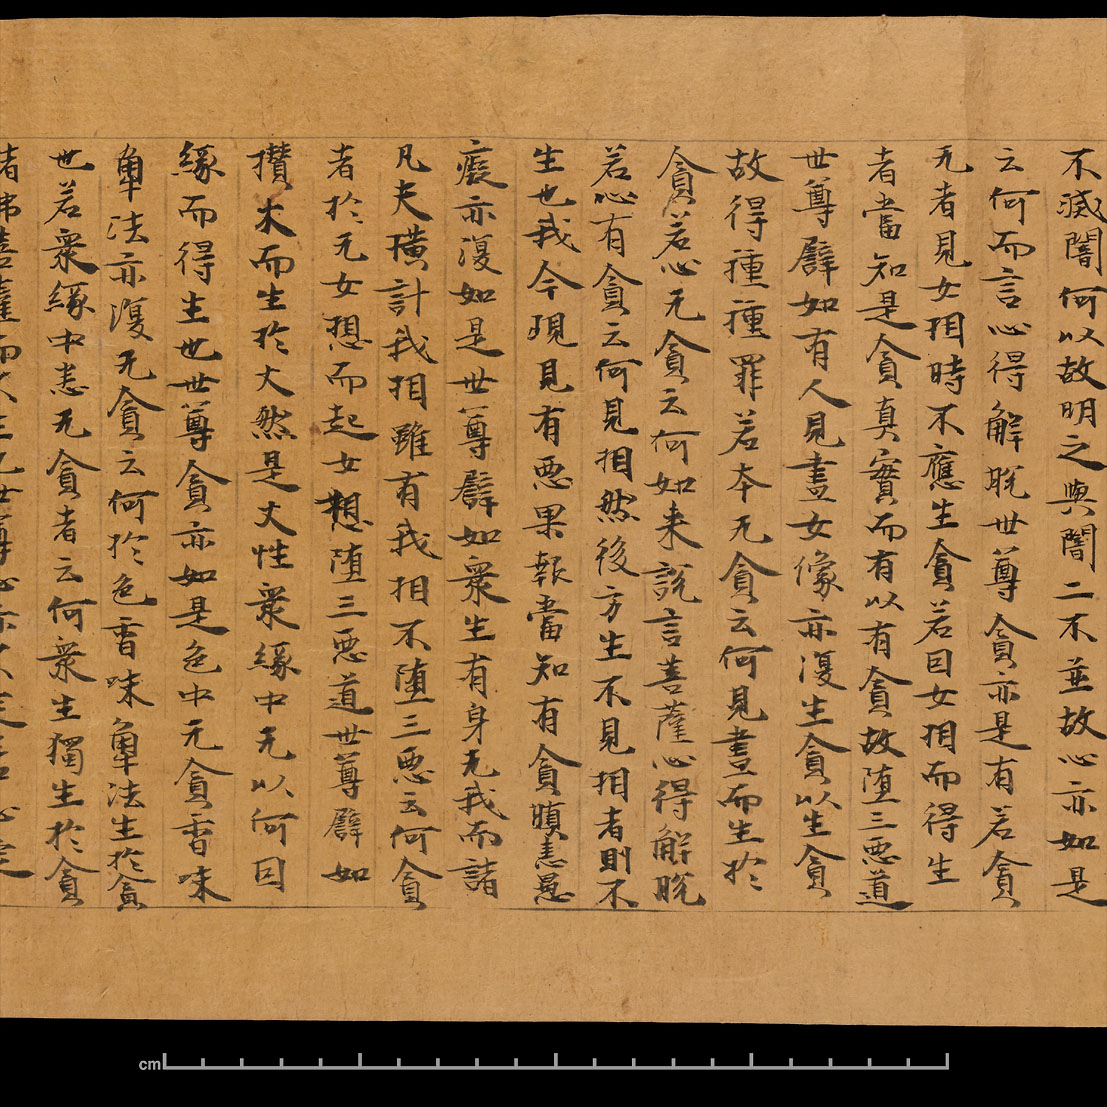 不滅闇何以故明之與闇二不並故心亦如是
云何而言心得解脫世尊貪亦是有若貪
无者見女相時不應生貪若因女相而得生
者當知是貪真實而有以有貪故墮三惡道
世尊譬如有人見畫女像亦復生貪以生貪
故得種種罪若本无貪云何見畫而生於
貪若心无貪云何如來說言菩薩心得解脫
若心有貪云何見相然後方生不見相者則不
生也我今現見有惡果報當知有貪瞋恚愚
癡亦復如是世尊譬如衆生有身无我而諸
凡夫橫計我相雖有我相不墮三惡云何貪
者於无女想而起女想墮三惡道世尊譬如
攢木而生於火然是火性衆緣中无以何因
緣而得生也世尊貪亦如是色中无貪香味
觸法亦復无貪云何於色香味觸法生於貪
也若衆緣中悉无貪者云何衆生獨生於貪